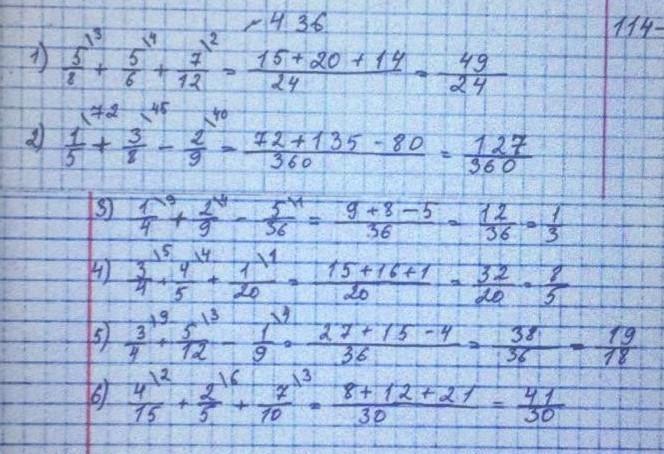 №436 114-
1) 5/8\3 + 5/6\4 + 7/12\2 = (15+20+14)/24 = 49/24
2) 1/5\72 + 3/8\45 - 2/9\40 = (72+135-80)/360 = 127/360
3) 1/4\9 + 2/9\4 - 5/36\1 = (9+8-5)/36 = 12/36 = 1/3
4) 3/4\5 + 4/5\4 + 1/20\1 = (15+16+1)/20 = 32/20 = 8/5
5) 3/4\9 + 5/12\3 - 1/9\4 = (27+15-4)/36 = 38/36 = 19/18
6) 4/15\2 + 2/5\6 + 7/10\3 = (8+12+21)/30 = 41/30